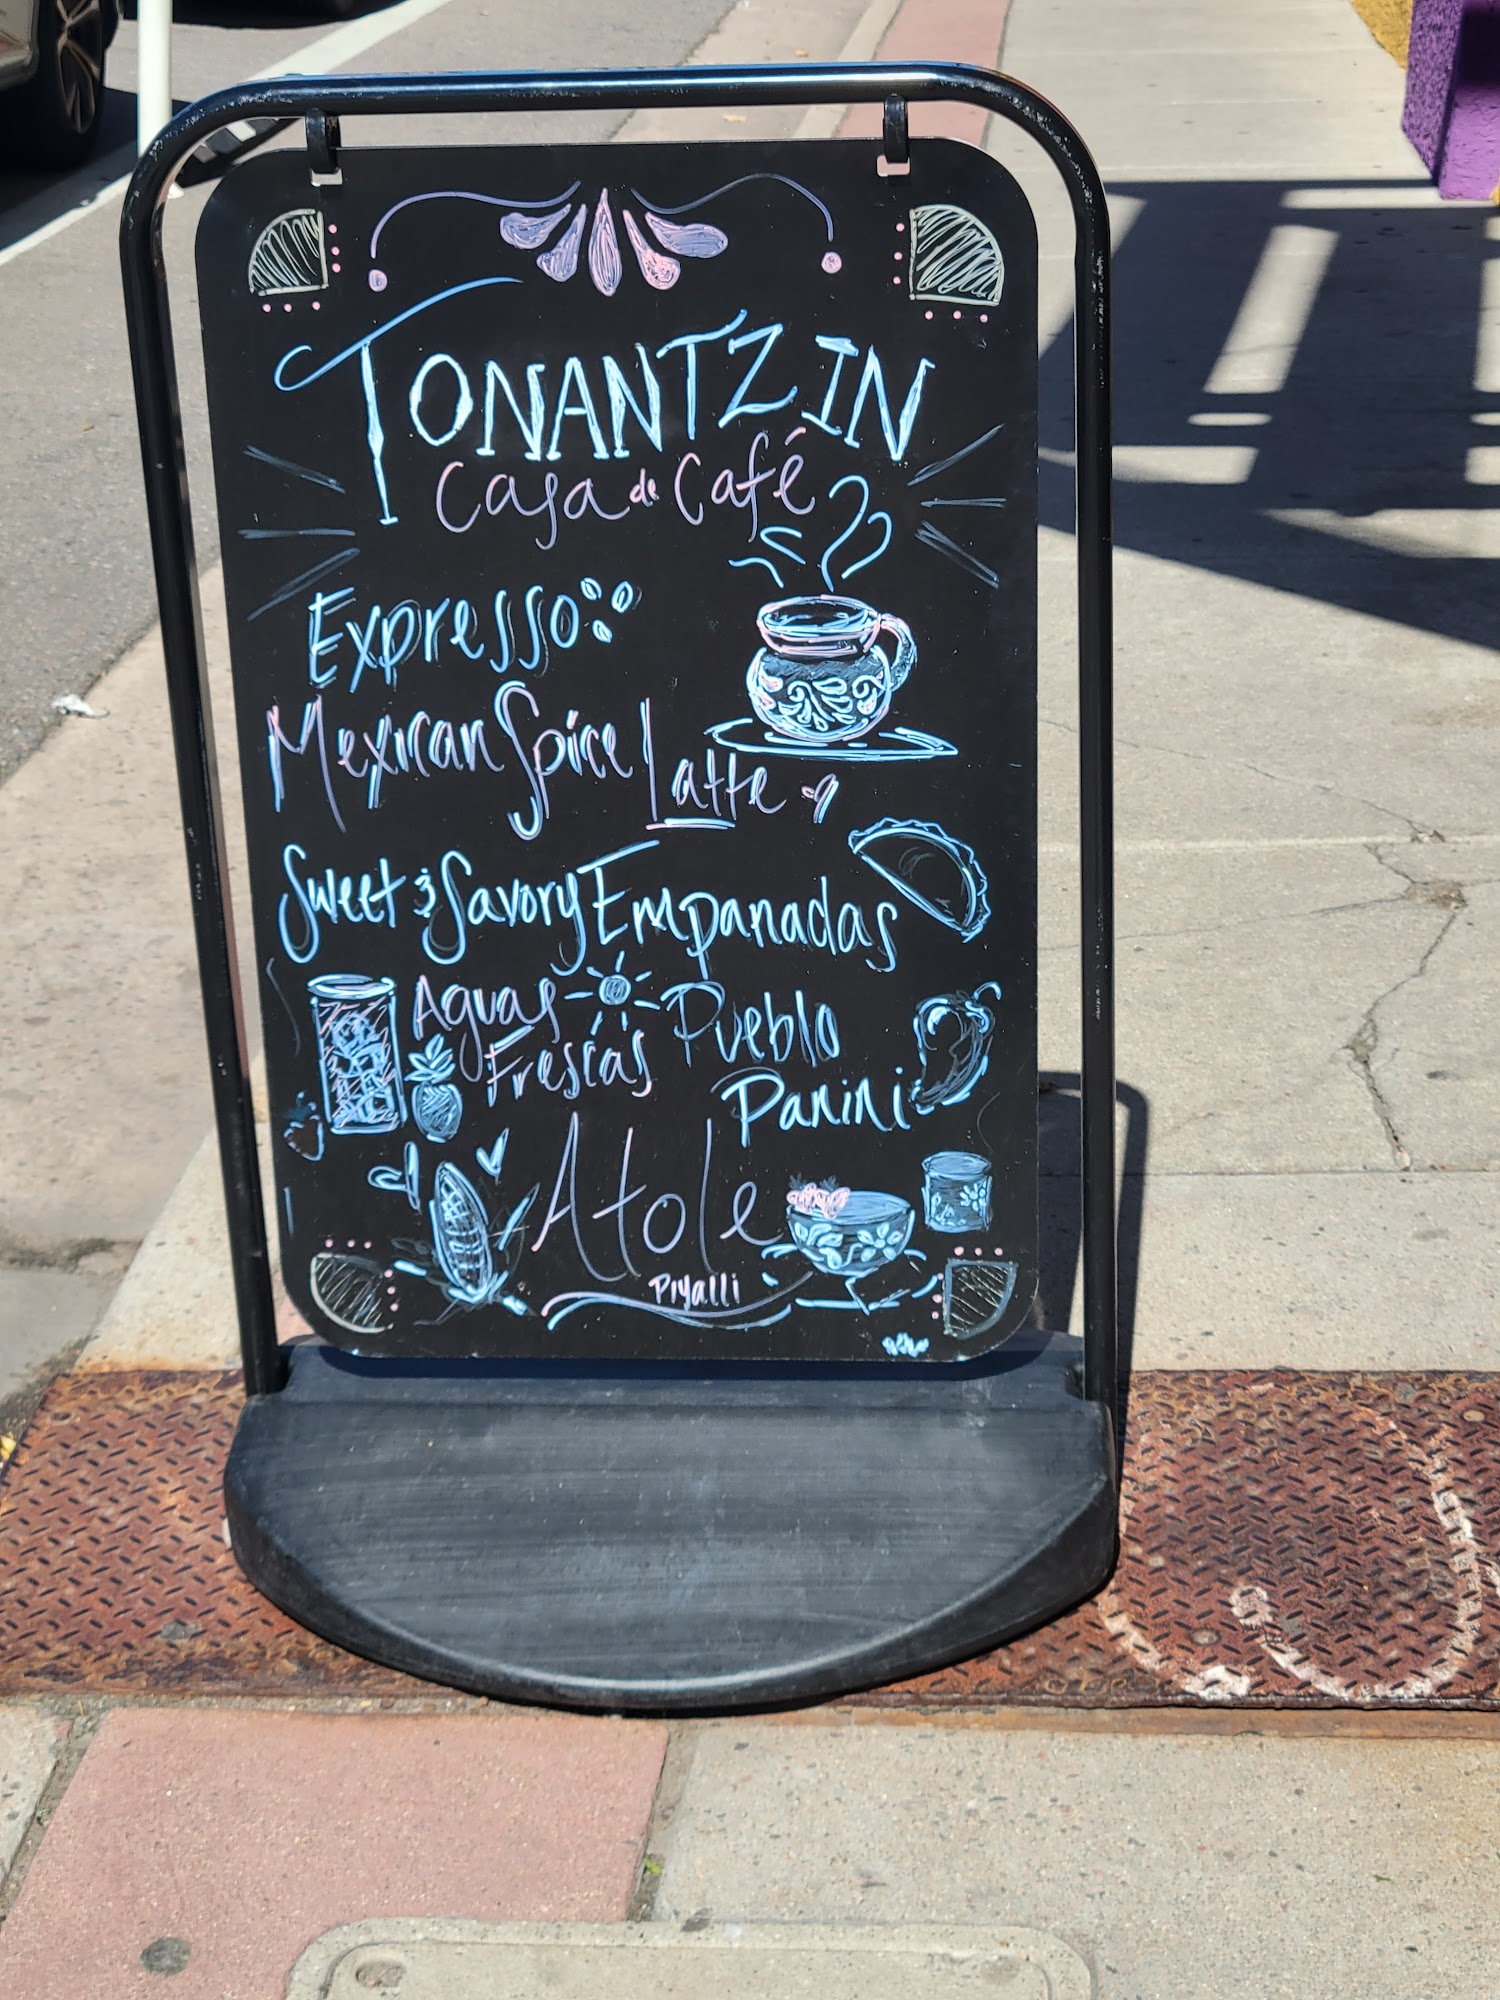 TONANTZIN
Casa de Café
Expresso
Mexican Spice Latte
Sweet & Savory Empanadas
Aguas
Frescas
Pueblo
Panini
Atole
Piyalli